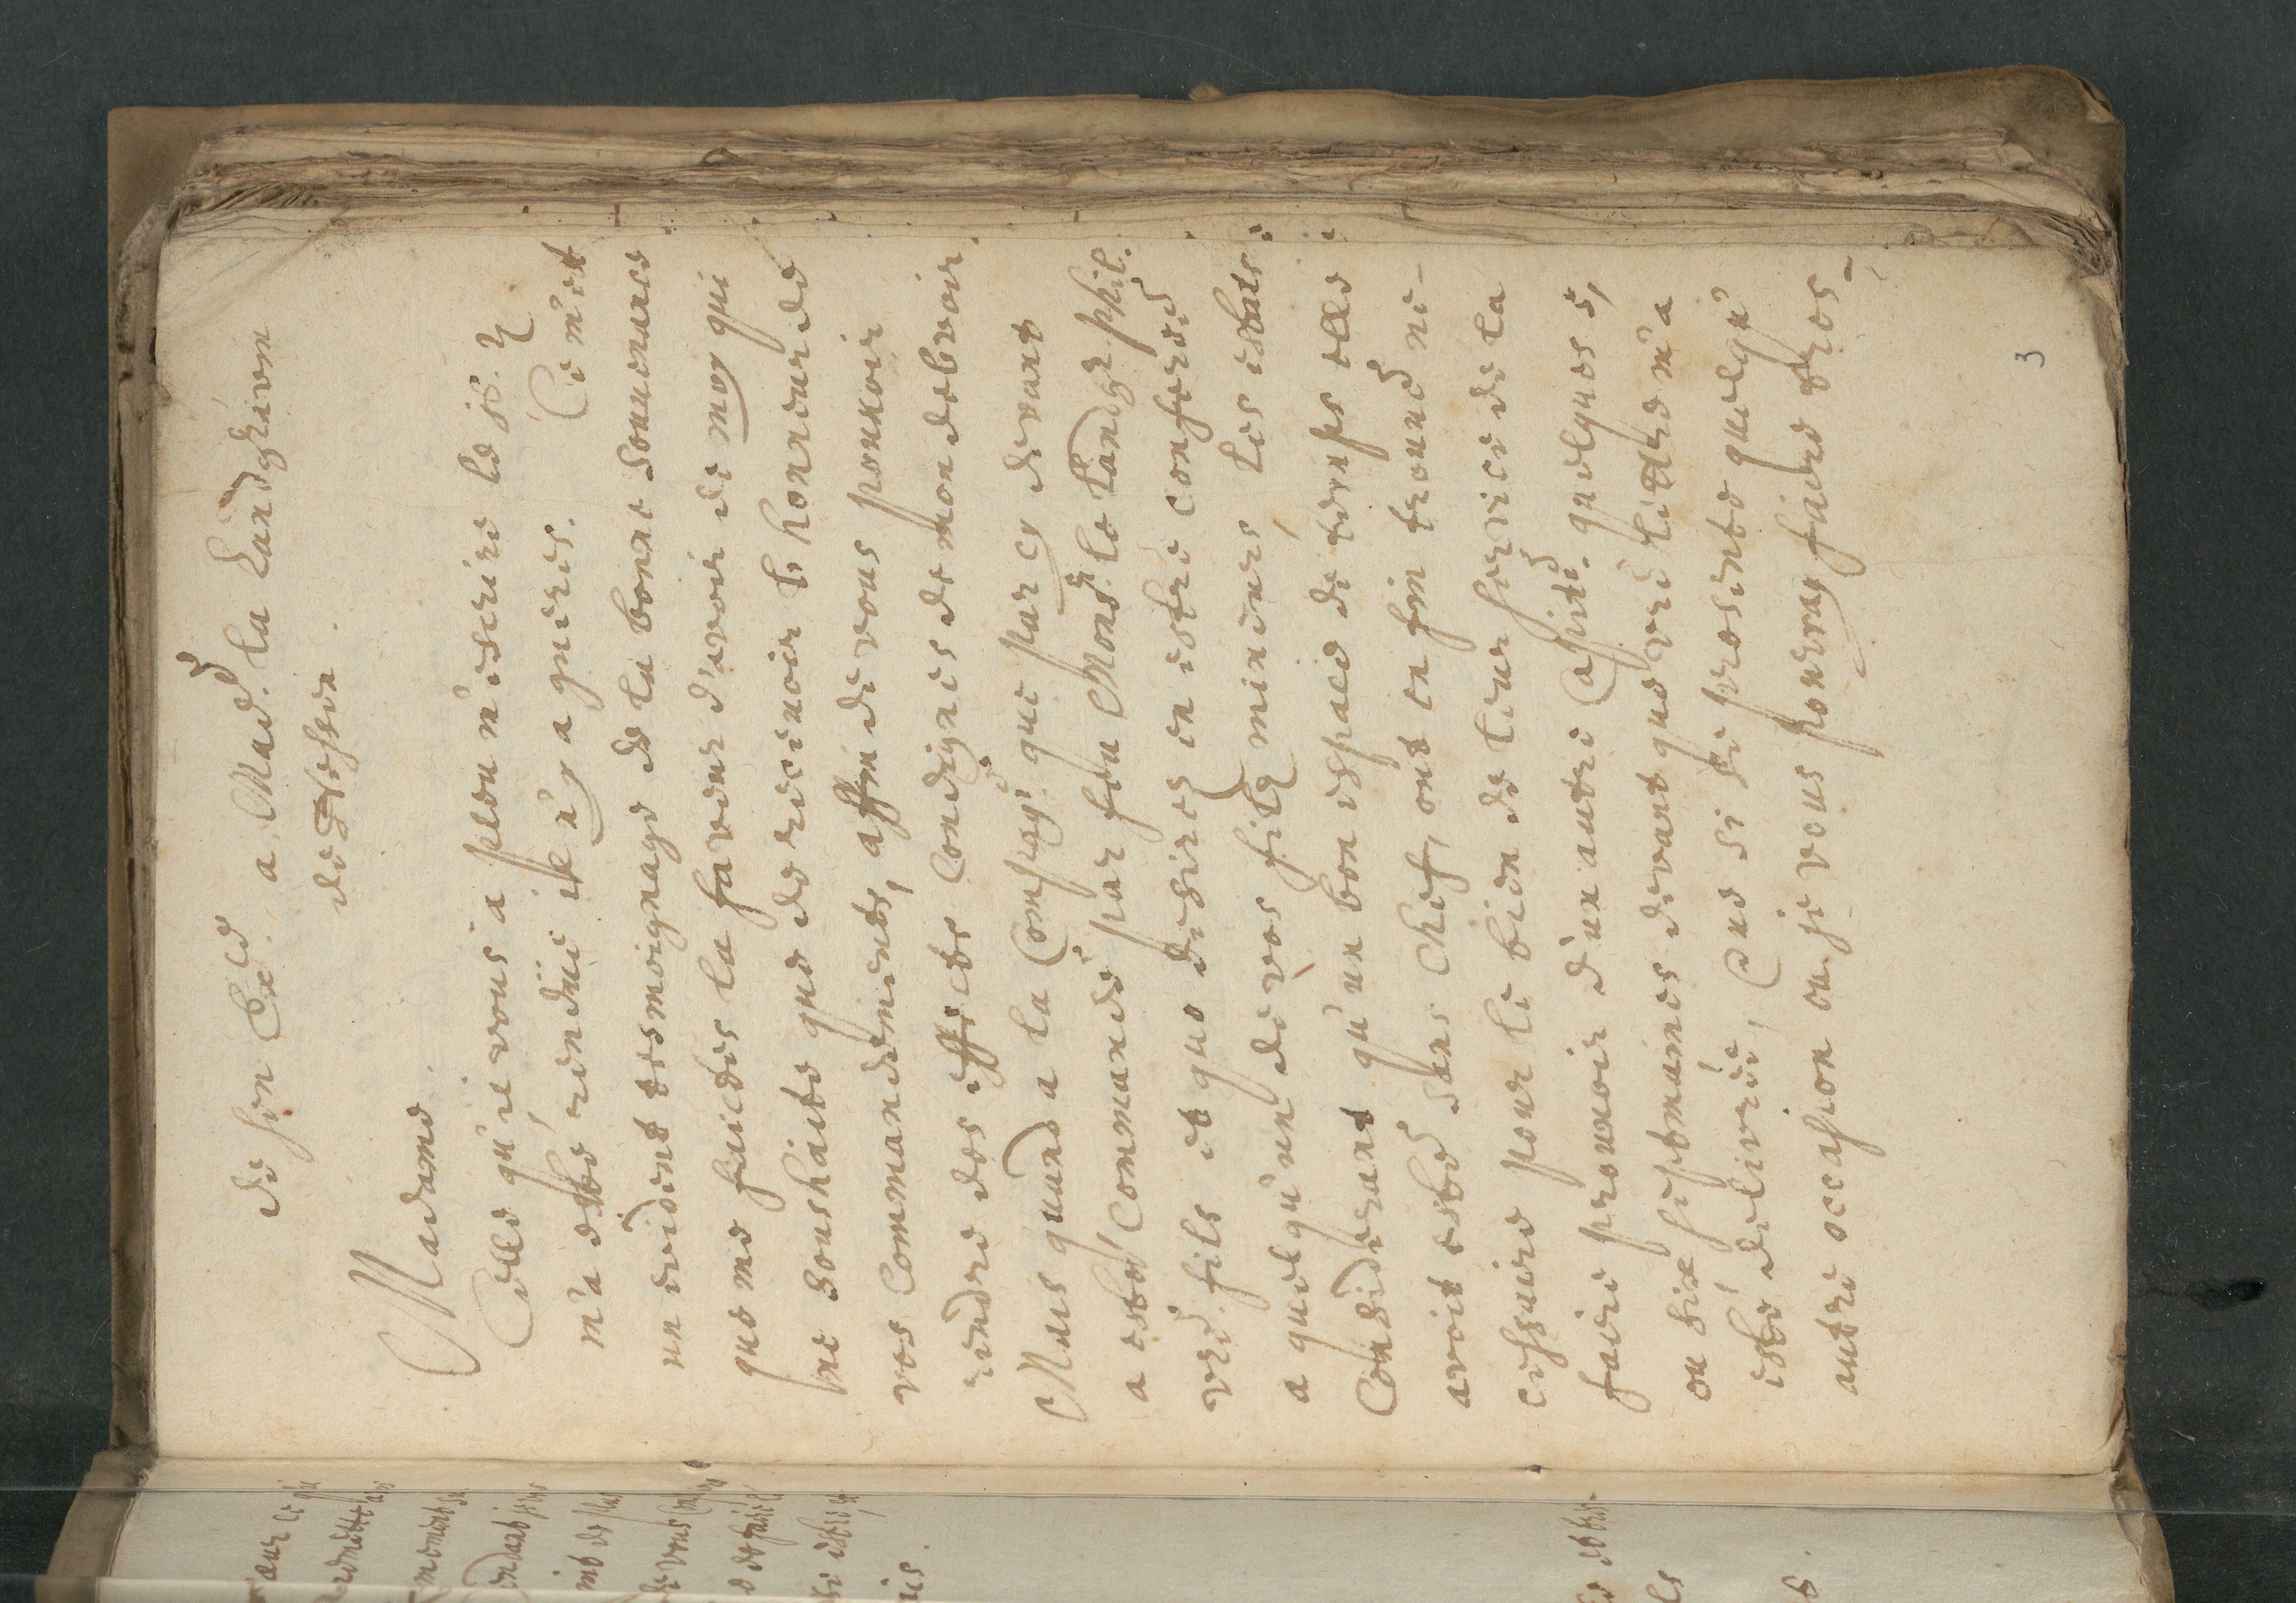 De son Exce. a Made. la Landgraven
de Hessen.
Madame.
Celle qu'il vous a pleu m'escrire le
m'a esté rendue il n'y a gueres. Ce m'est
un evident tesmoignage de la bonne souvenance
que me faictes la faveur d'avoir de moy qui
ne soushaite que de recevoir l'honneur de
vos Commandements, affin de vous pouvoir
rendre des effects condignes de mon debvoir.
Mais quand a la Compage. qui par cy devant
a esté Commandé par feu Monsr. le Landgr. phil.
vre. fils et que desirez en estre conferée
a quelqu'un de vos filz mineurs, les estats
Considerant qu'un bon espace de temps elle
avoit esté sans chef, ont en fin trouvé ne-
cessaire pour le bien de leur service de la
faire pourvoir d'un autre Capite. quelques
ou six sepmaines devant que vre lettre m'a
esté delivrée, Que si se presente quelqu'
autre occasion ou je vous pourray faire tres-
3